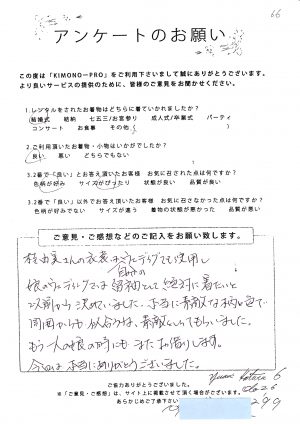 66
アンケートのお願い
この度は「KIMONO-PRO」をご利用下さいまして誠にありがとうございます。
より良いサービスの提供のために、皆様のご意見をお聞かせください。
1.レンタルをされたお着物はどちらに着ていかれましたか?
結婚式 結納 七五三/お宮参り 成人式/卒業式 パーティ
コンサート お食事 その他( )
2.ご利用頂いたお着物・小物はいかがでしたか?
良い 悪い どちらでもない
3.2番で「良い」とお答え頂いたお客様 お気に召された点は何ですか?
色柄が好み サイズがぴったり 状態が良い 品質が良い
3.2番で「良い」以外でお答え頂いたお客様 お気に召さなかった点は何ですか?
色柄が好みでない サイズが違う 着物の状態が悪かった 品質が悪い
ご意見・ご感想などのご記入をお願い致します。
桂由美さんの衣裳
自分の
娘のウェディングでは留袖として絶対に着たいと
以前から決めていました。本当に素敵な柄と色で
周囲からも
素敵といってもらいました。
もう一人の娘の時にもまたお借りします。
今回は本当にありがとうございました。
ご協力ありがとうございました。
※「ご意見・ご感想」は、サイト上に掲載させて頂く場合がございます。
あらかじめご了承下さい
299